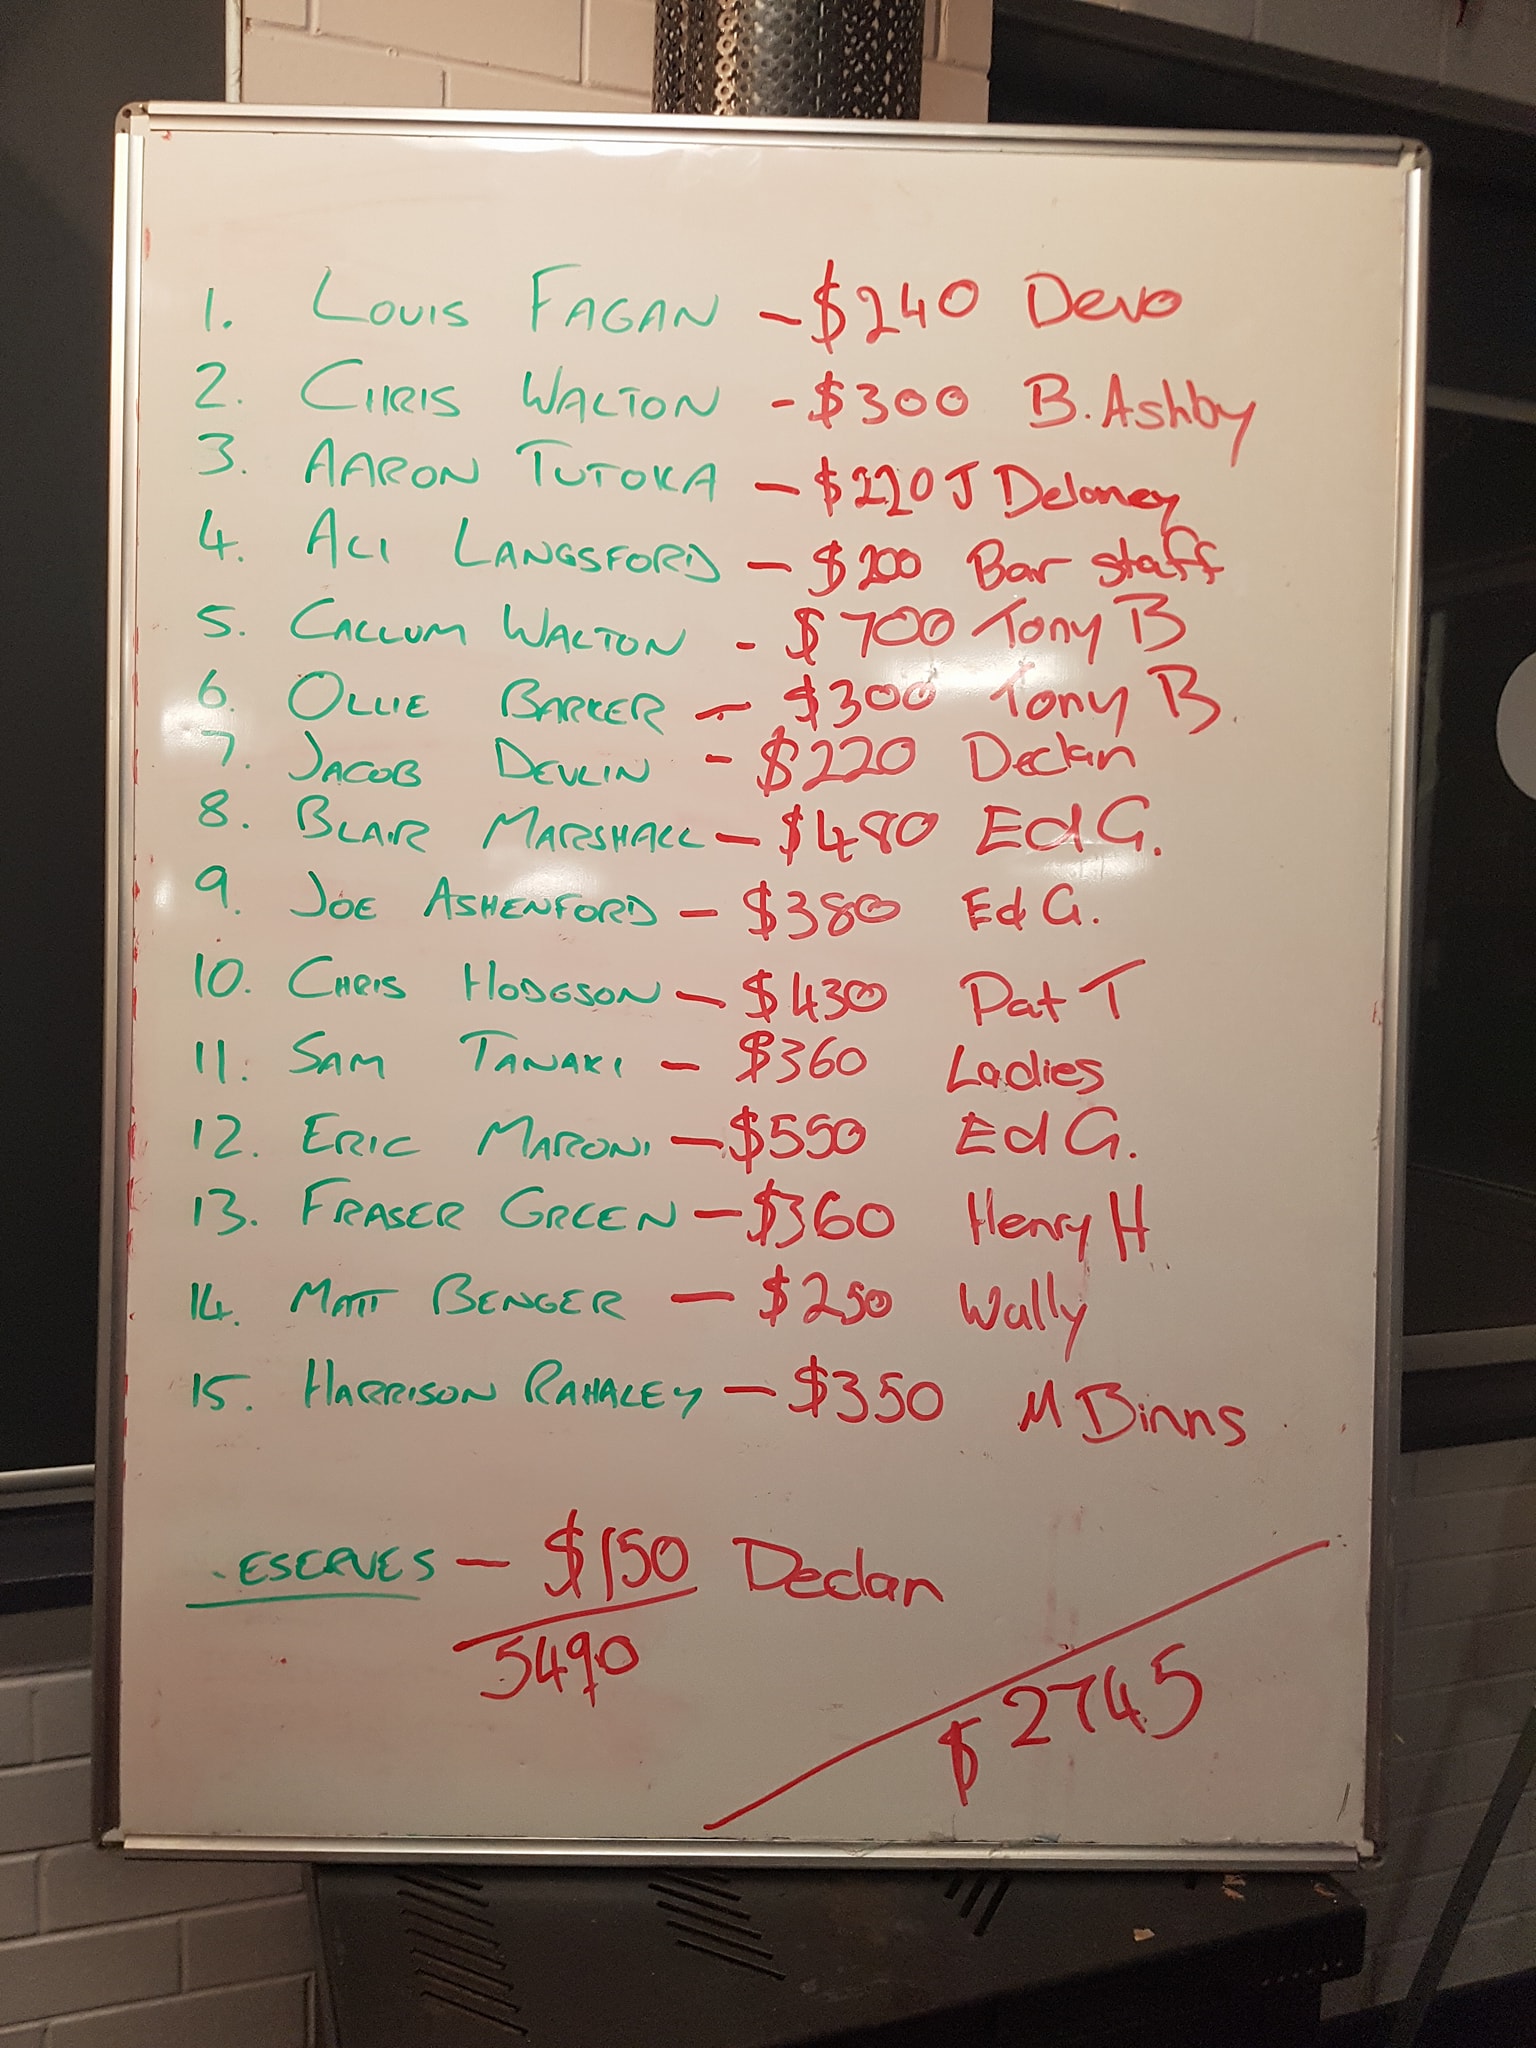 1. LOUIS FAGAN - $240 Devo
2. CHRIS WALTON - $300 B. Ashby
3. AARON TUTOKA - $220 J Delaney
4. ALI LANGSFORD - $200 Bar staff
5. CALLUM WALTON - $700 Tony B
6. OLLIE BARKER - $300 Tony B
7. JACOB DEVLIN - $220 Declan
8. BLAIR MARSHALL - $480 Ed G.
9. JOE ASHENFORD - $380 Ed G.
10. CHRIS HODGSON - $430 Pat T
11. SAM TANAKI - $360 Ladies
12. ERIC MARONI - $550 Ed G.
13. FRASER GREEN - $360 Henry H
14. MATT BENGER - $250 Wally
15. HARRISON RAHALEY - $350 M Binns
ESERVES - $150 Declan
5490
$2745